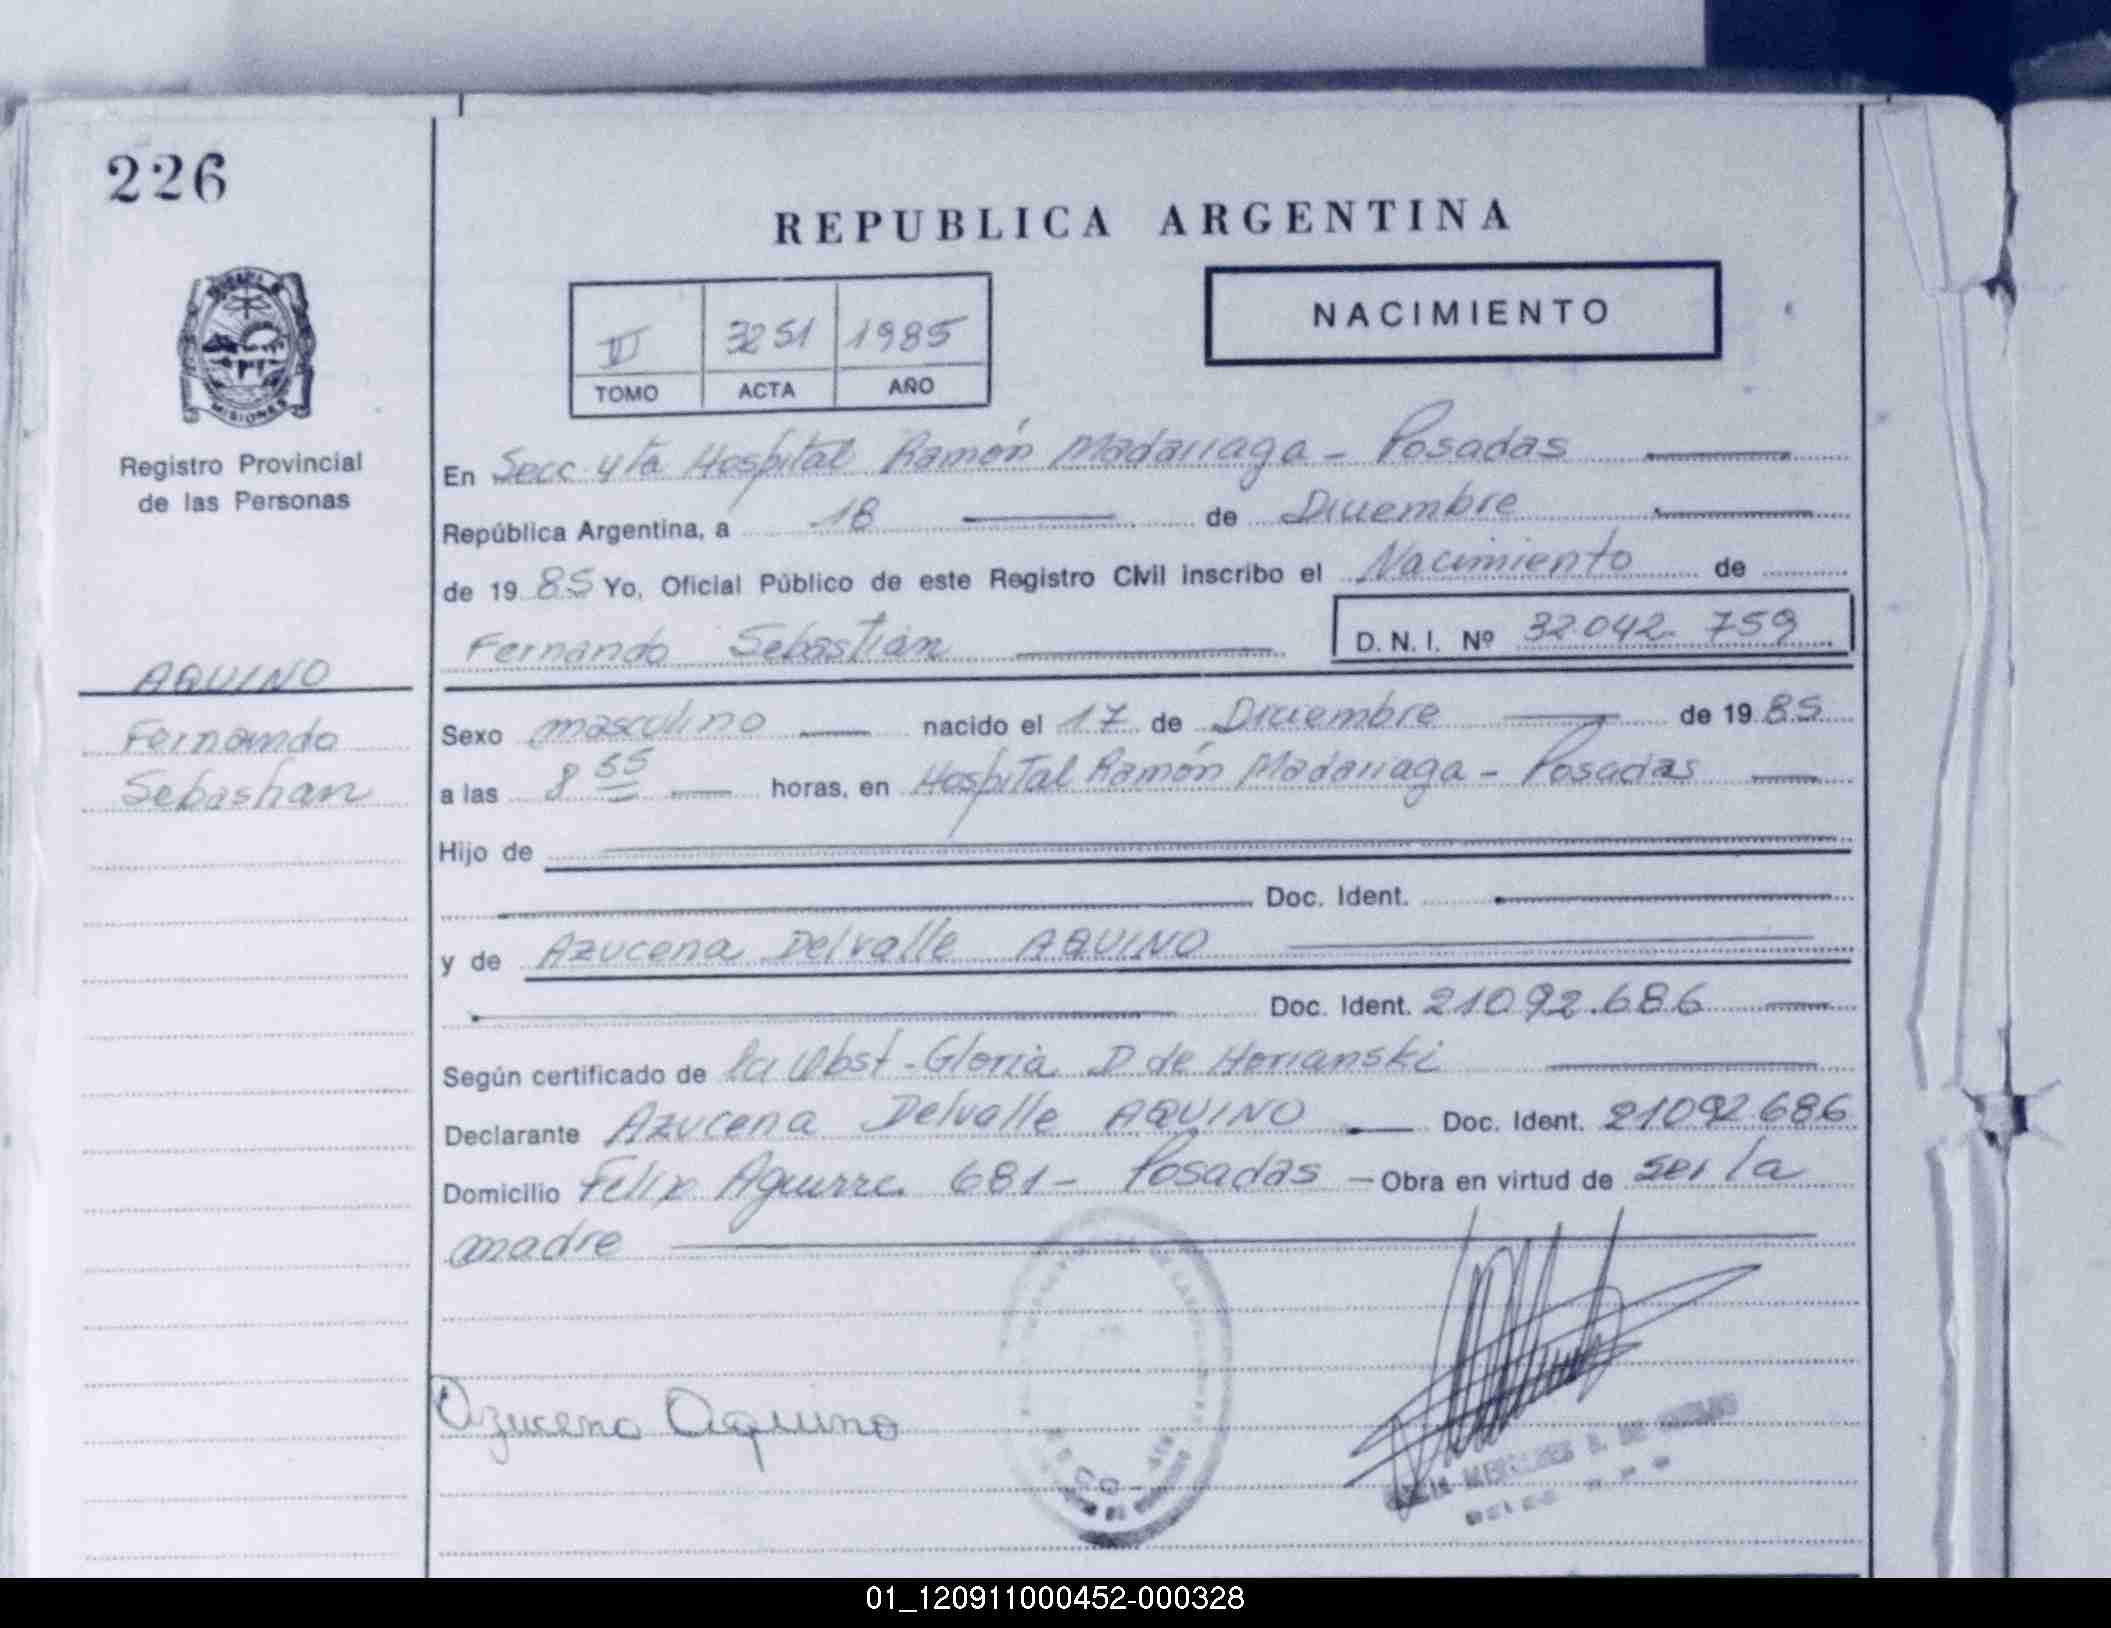 226
REPUBLICA ARGENTINA
NACIMIENTO
3251 1985
TOMO ACTA AÑO
MISIONES
Registro Provincial
de las Personas
En Secc 4ta Hospital Ramón Madariaga - Posadas
República Argentina, a 18 de Diciembre
de 1985 Yo, Oficial Público de este Registro Civil inscribo el Nacimiento de
Fernando Sebastián D.N.I. Nº 32.042.759
AQUINO
Fernando
Sebastian
Sexo masculino nacido el 17 de Diciembre de 1985
a las 8 55 horas, en Hospital Ramón Madariaga - Posadas
Hijo de
Doc. Ident.
y de Azucena Delvalle AQUINO
Doc. Ident. 21092.686
Según certificado de la Obst. Gloria D de Horianski
Declarante Azucena Delvalle AQUINO Doc. Ident. 21092.686
Domicilio Felix Aguirre 681 - Posadas - Obra en virtud de ser la
madre
Azucena Aquino
01_120911000452-000328